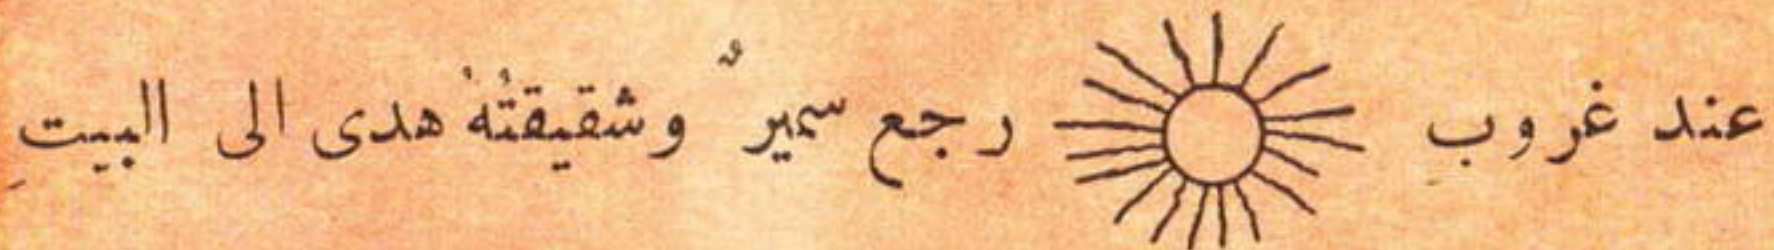 عند غروب رجع سميرٌ وشقيقتُهُ هدى الى البيتِ